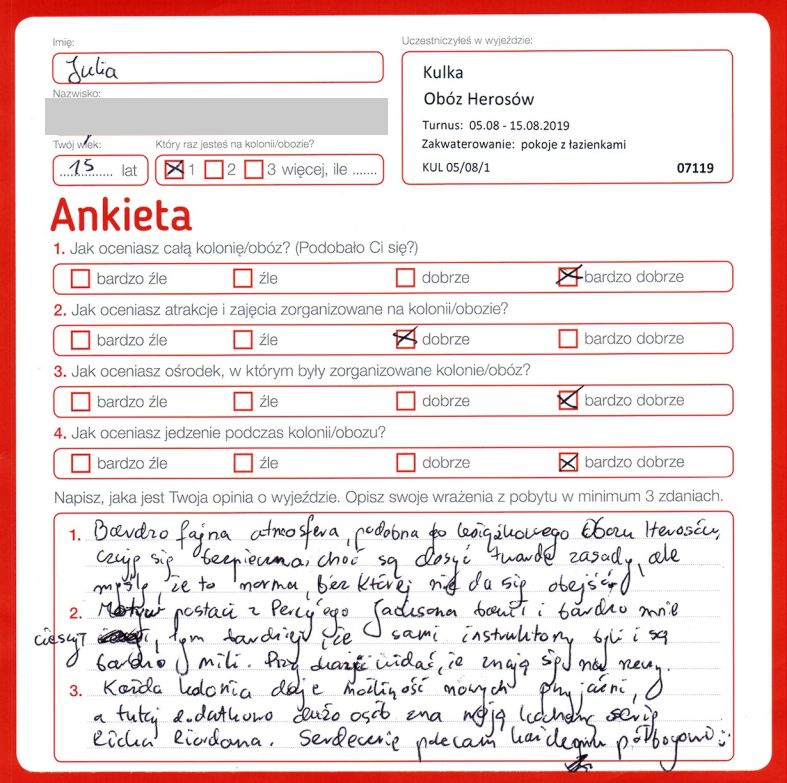 Imię:
Julia
Nazwisko:
Twój wiek:
15 lat
Który raz jesteś na kolonii/obozie?
1 2 3 więcej, ile .......
Uczestniczyłeś w wyjeździe:
Kulka
Obóz Herosów
Turnus: 05.08 - 15.08.2019
Zakwaterowanie: pokoje z łazienkami
KUL 05/08/1 07119
Ankieta
1. Jak oceniasz całą kolonię/obóz? (Podobało Ci się?)
bardzo źle źle dobrze bardzo dobrze
2. Jak oceniasz atrakcje i zajęcia zorganizowane na kolonii/obozie?
bardzo źle źle dobrze bardzo dobrze
3. Jak oceniasz ośrodek, w którym były zorganizowane kolonie/obóz?
bardzo źle źle dobrze bardzo dobrze
4. Jak oceniasz jedzenie podczas kolonii/obozu?
bardzo źle źle dobrze bardzo dobrze
Napisz, jaka jest Twoja opinia o wyjeździe. Opisz swoje wrażenia z pobytu w minimum 3 zdaniach.
1. Bardzo fajna atmosfera, podobna do książkowego Obozu Herosów,
czuję się bezpieczna, choć są dosyć twarde zasady, ale
myślę, że to norma, bez której nie da się obejść
2. Motyw postaci z Percy'ego Jacksona bawił i bardzo mnie
cieszył, tym bardziej, że sami instruktorzy byli i są
bardzo mili. Przy okazji widać, że znają się na rzeczy.
3. Każda kolonia daje możliwość nowych przyjaźni,
a tutaj dodatkowo dużo osób zna moją kochaną serię
Ricka Riordana. Serdecznie polecam każdemu półbogowi :)